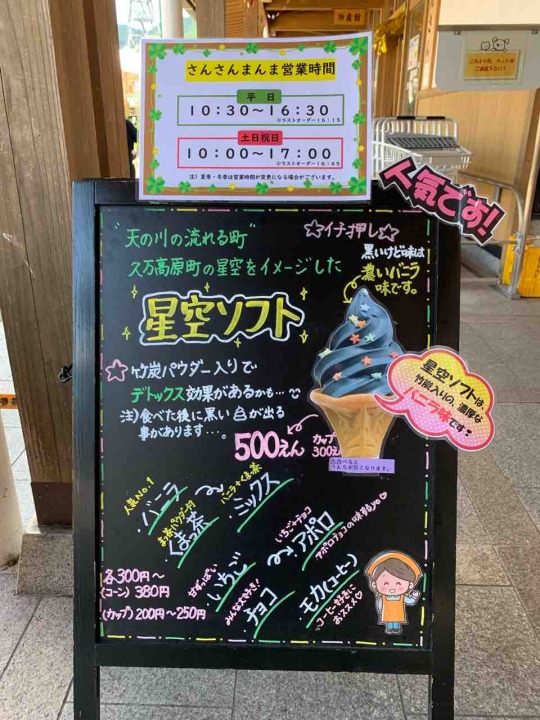 物産館
さんさんまんま営業時間
平 日
10:30～16:30
※ラストオーダー16:15
土日祝日
10:00～17:00
※ラストオーダー16:45
注）夏季・冬季は営業時間が変更になる場合がございます。
人気です!
"天の川の流れる町"
久万高原町の星空をイメージした
星空ソフト
☆イチ押し☆
黒いけど味は
濃いバニラ
味です。
☆竹炭パウダー入りで
デトックス効果があるかも…
注)食べた後に黒い💩が出る
事があります…。
500えん
カップ
300えん
星空ソフトは
竹炭入りの、濃厚な
バニラ味です!
うんちが黒くなります。
人気No.1
バニラ
～
バニラ+くま茶
ミックス
まっ茶パウダー付
くま茶
いちご+チョコ
～アポロ
アポロチョコの味するよ♡
甘ずっぱい
いちご
みんな大好き!
チョコ
モカ(コーヒー)
コーヒー好きに
おススメ♡
各300円～
(コーン) 380円
(カップ) 200円～250円